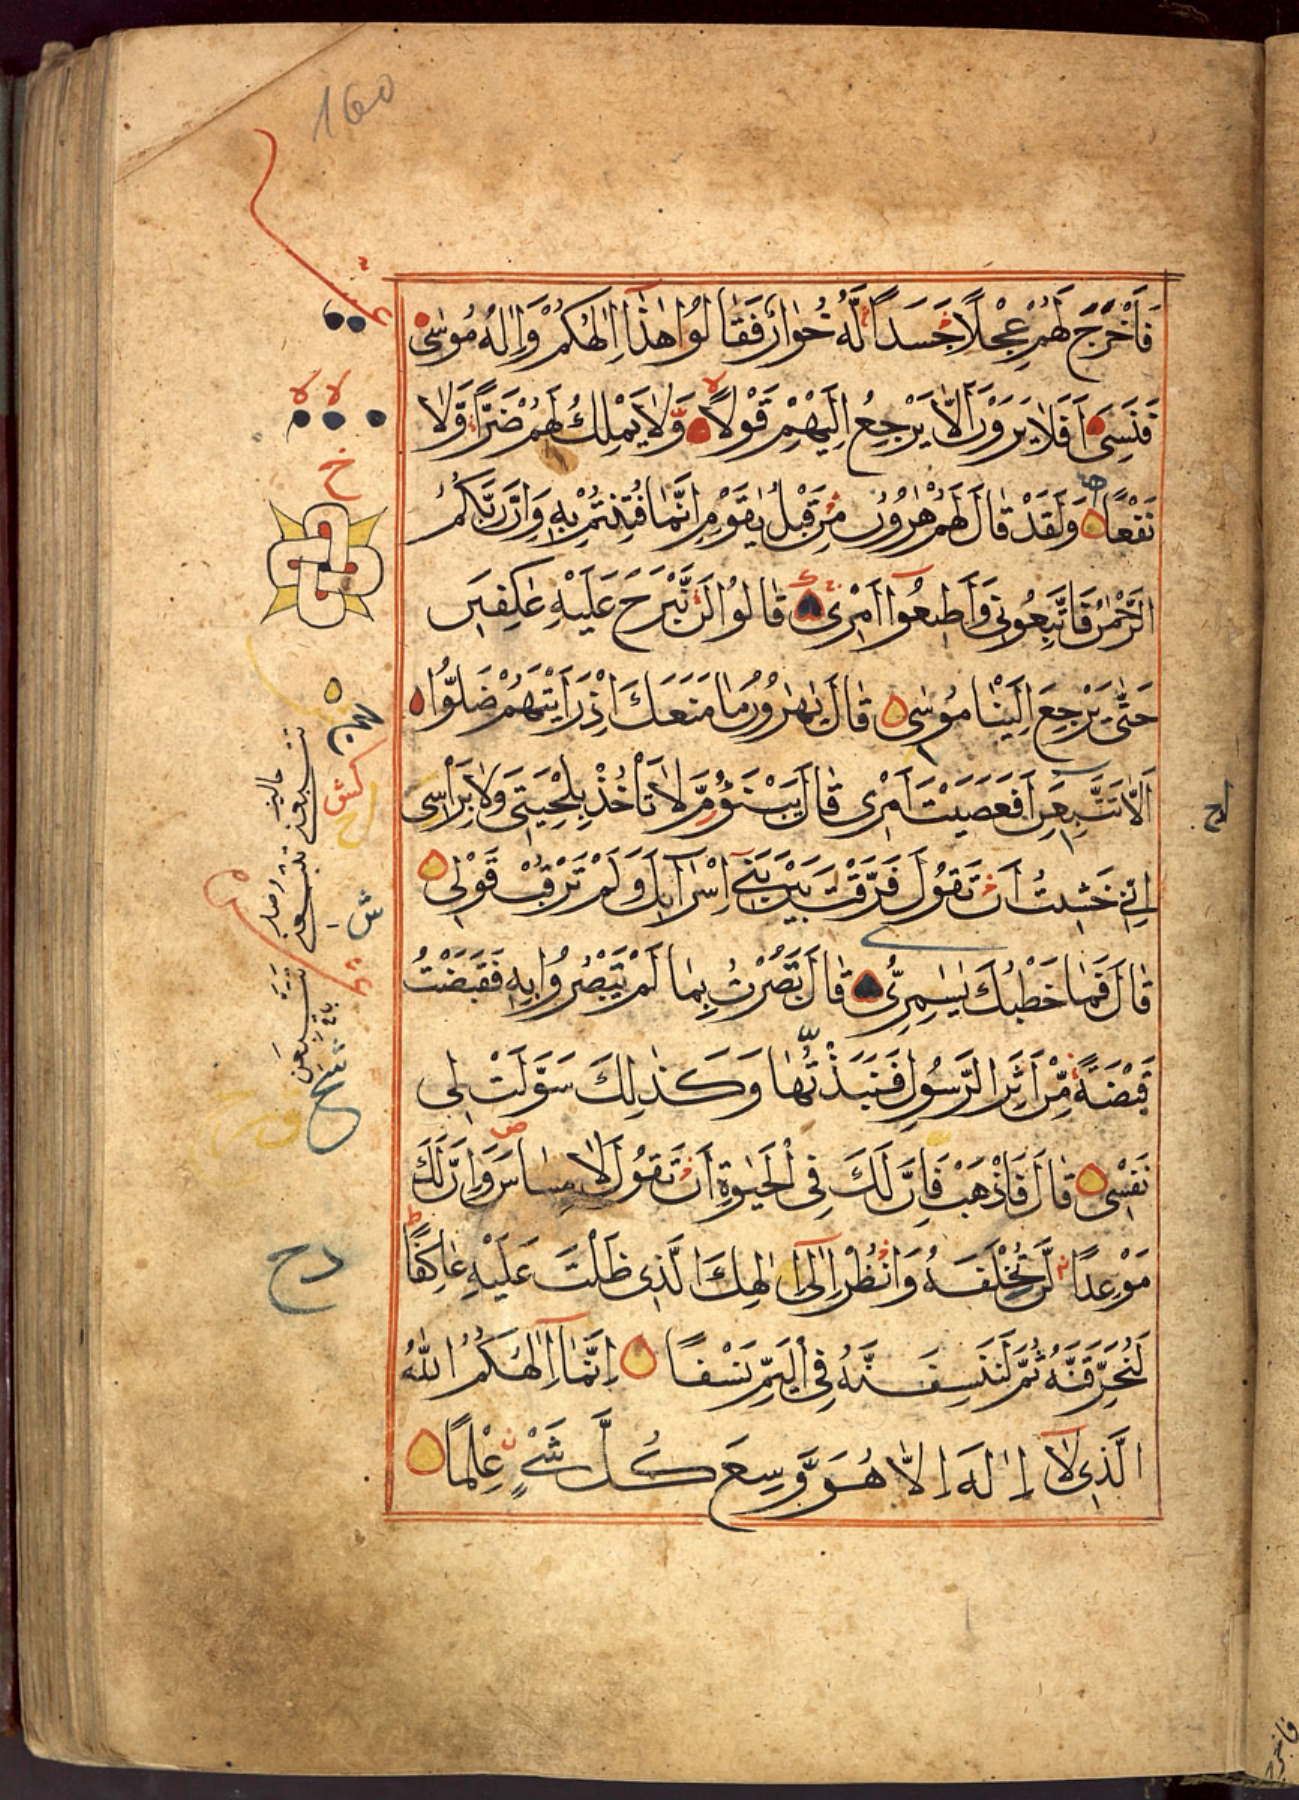 160
فَاَخْرَجَ لَهُمْ عِجْلًا جَسَدًا لَّهُ خُوَارٌ فَقَالُوا هٰذَآ اِلٰهُكُمْ وَاِلٰهُ مُوسٰى
فَنَسِىَ اَفَلَا يَرَوْنَ اَلَّا يَرْجِعُ اِلَيْهِمْ قَوْلًا وَّلَا يَمْلِكُ لَهُمْ ضَرًّا وَّلَا
نَفْعًا وَلَقَدْ قَالَ لَهُمْ هٰرُوْنُ مِنْ قَبْلُ يٰقَوْمِ اِنَّمَا فُتِنْتُمْ بِهٖ وَاِنَّ رَبَّكُمُ
الرَّحْمٰنُ فَاتَّبِعُونِى وَاَطِيعُوٓا اَمْرِى قَالُوا لَنْ نَّبْرَحَ عَلَيْهِ عٰكِفِينَ
حَتّٰى يَرْجِعَ اِلَيْنَا مُوسٰى قَالَ يٰهٰرُوْنُ مَا مَنَعَكَ اِذْ رَاَيْتَهُمْ ضَلُّوٓا
اَلَّا تَتَّبِعَنِ اَفَعَصَيْتَ اَمْرِى قَالَ يَبْنَؤُمَّ لَا تَاْخُذْ بِلِحْيَتِى وَلَا بِرَاْسِى
اِنِّى خَشِيتُ اَنْ تَقُولَ فَرَّقْتَ بَيْنَ بَنِىٓ اِسْرَآءِيلَ وَلَمْ تَرْقُبْ قَوْلِى
قَالَ فَمَا خَطْبُكَ يٰسٰمِرِىُّ قَالَ بَصُرْتُ بِمَا لَمْ يَبْصُرُوا بِهٖ فَقَبَضْتُ
قَبْضَةً مِّنْ اَثَرِ الرَّسُولِ فَنَبَذْتُهَا وَكَذٰلِكَ سَوَّلَتْ لِى
نَفْسِى قَالَ فَاذْهَبْ فَاِنَّ لَكَ فِى الْحَيٰوةِ اَنْ تَقُولَ لَا مِسَاسَ وَاِنَّ لَكَ
مَوْعِدًا لَّنْ تُخْلَفَهُ وَانْظُرْ اِلٰٓى اِلٰهِكَ الَّذِى ظَلْتَ عَلَيْهِ عَاكِفًا
لَنُحَرِّقَنَّهُ ثُمَّ لَنَنْسِفَنَّهُ فِى الْيَمِّ نَسْفًا اِنَّمَآ اِلٰهُكُمُ اللّٰهُ
الَّذِى لَآ اِلٰهَ اِلَّا هُوَ وَسِعَ كُلَّ شَىْءٍ عِلْمًا